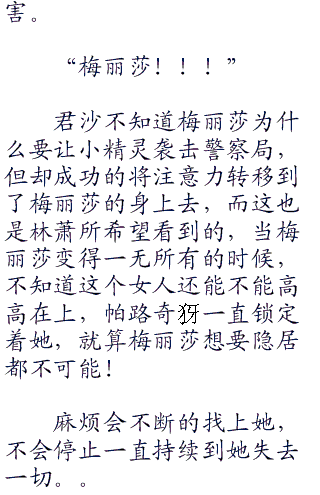 害。
“梅丽莎！！！”
君沙不知道梅丽莎为什
么要让小精灵袭击警察局，
但却成功的将注意力转移到
了梅丽莎的身上去，而这也
是林萧所希望看到的，当梅
丽莎变得一无所有的时候，
不知道这个女人还能不能高
高在上，帕路奇犽一直锁定
着她，就算梅丽莎想要隐居
都不可能！
麻烦会不断的找上她，
不会停止一直持续到她失去
一切。。